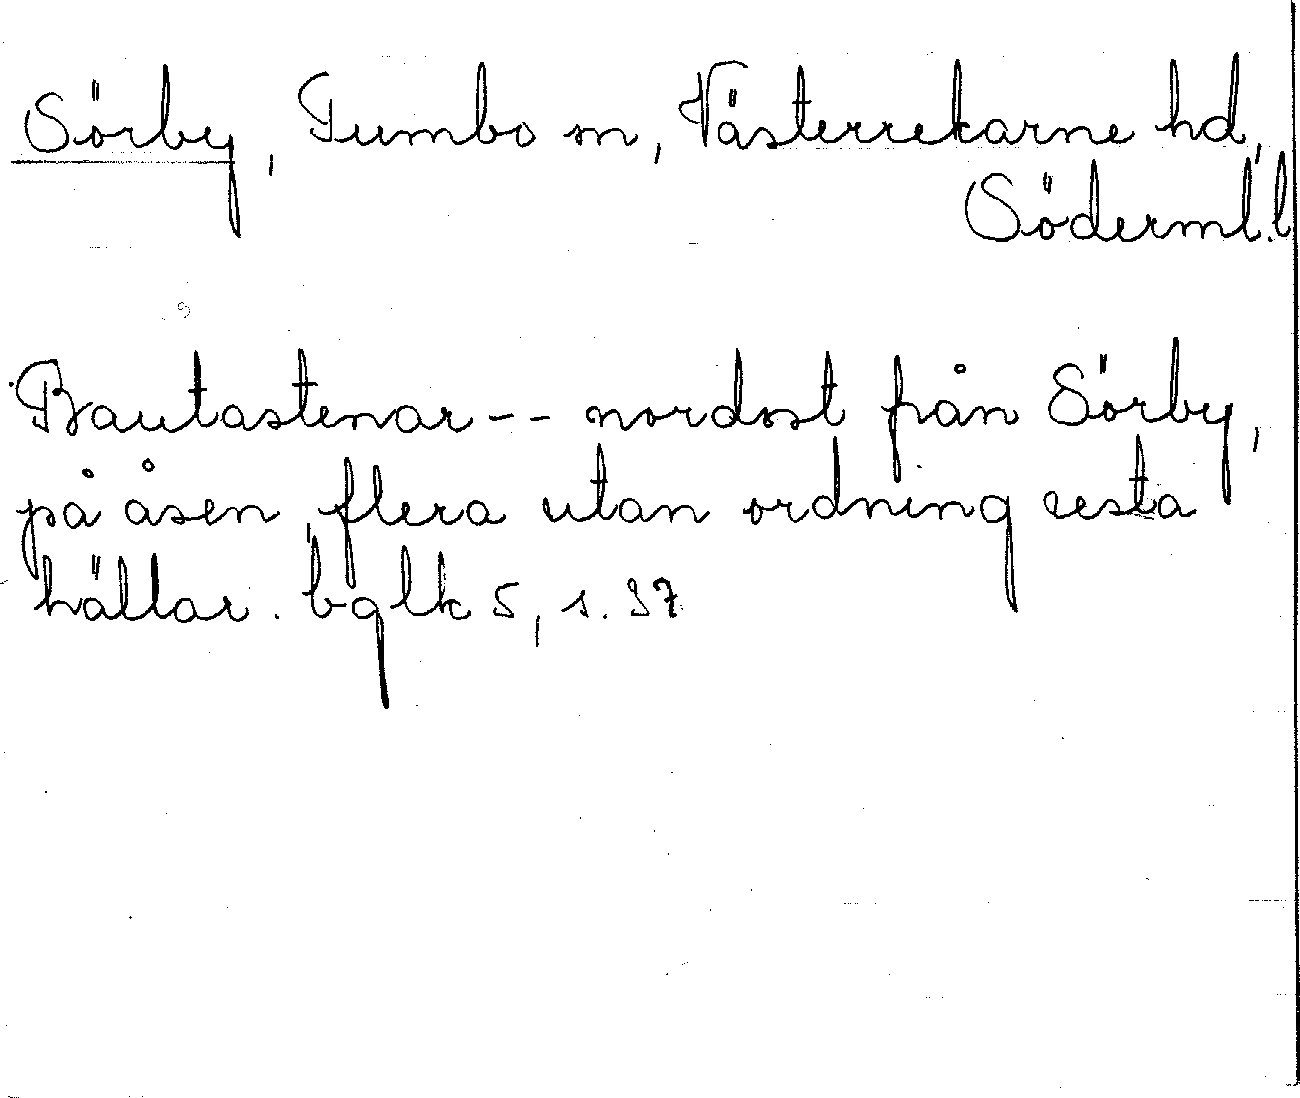 Sörby, Tumbo sn, Västerrekarne hd,
Söderml. l
Bautastenar -- nordost från Sörby,
på åsen, flera utan ordning resta
hällar. bglk 5, s. 37